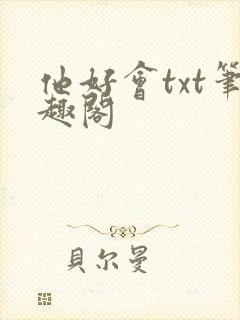 他好會txt筆
趣閣
貝尔曼